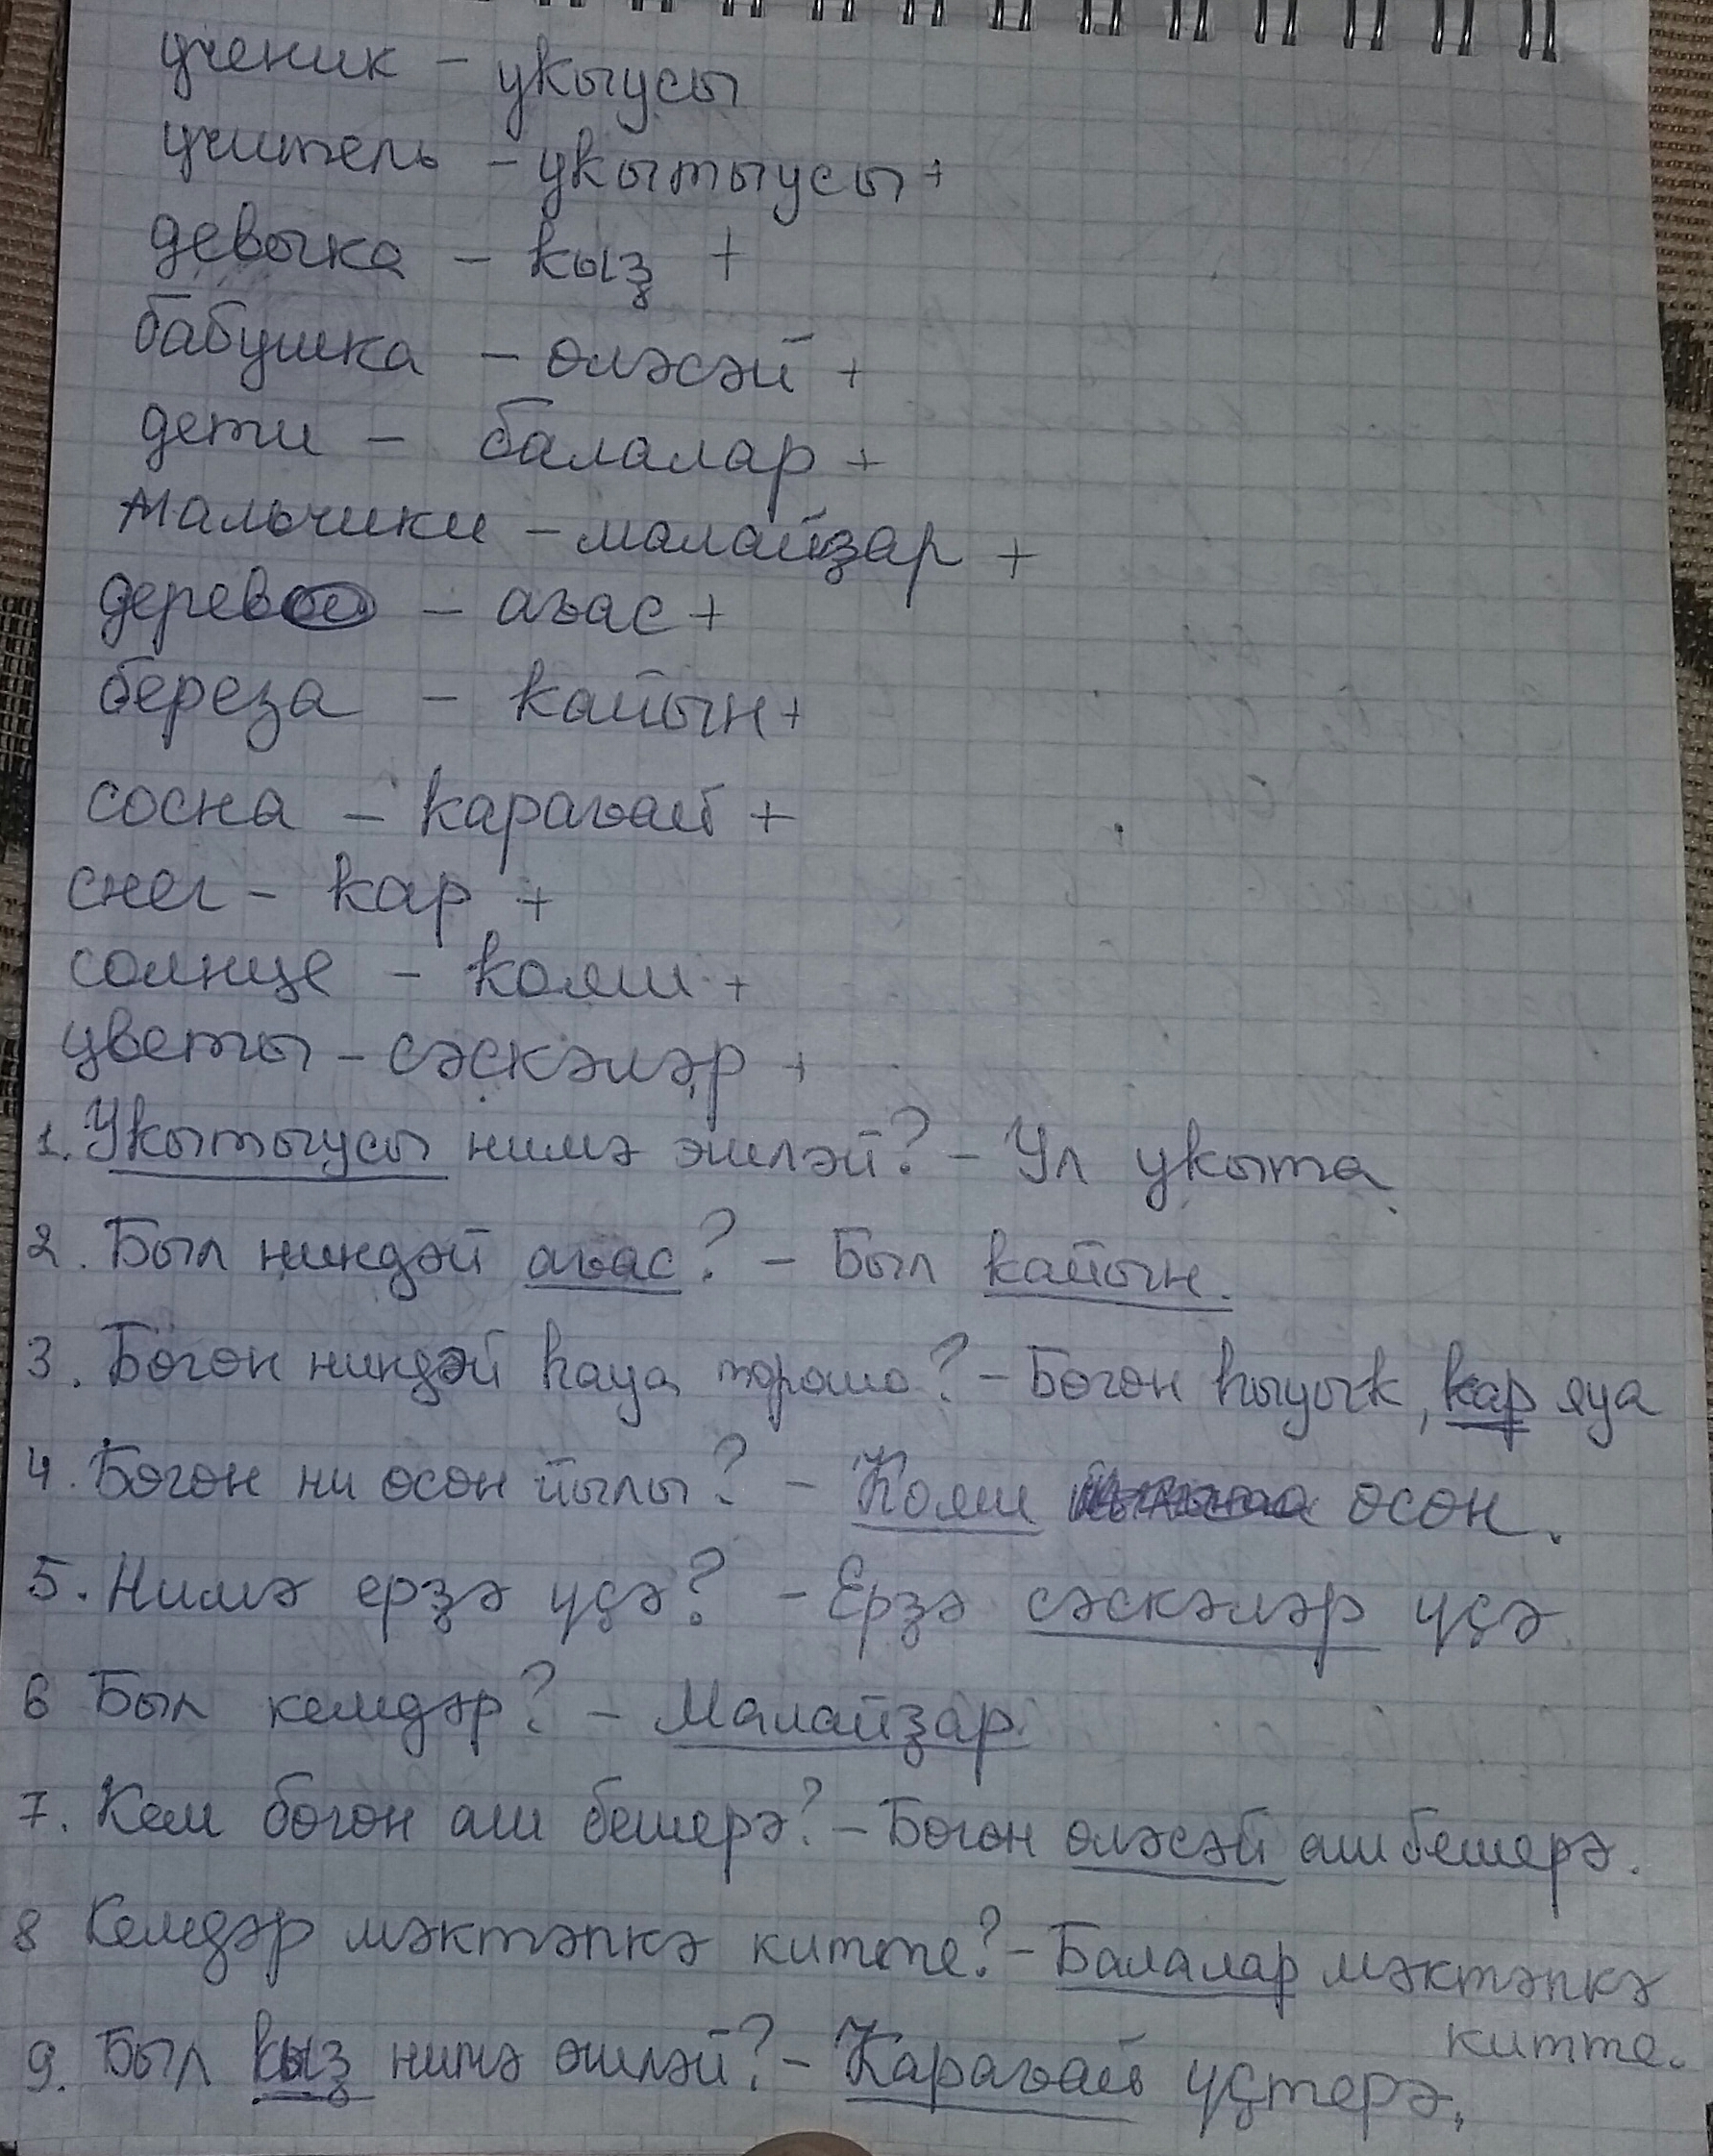 ученик – уҡыусы
учитель – уҡытыусы +
девочка – ҡыҙ +
бабушка – өләсәй +
дети – балалар +
мальчики – малайҙар +
дерево – ағас +
береза – ҡайын +
сосна – ҡарағай +
снег – ҡар +
солнце – ҡояш +
цветы – сәскәләр +
1. Уҡытыусы нимә эшләй? – Ул уҡыта.
2. Был ниндәй ағас? – Был ҡайын.
3. Бөгөн ниндәй һауа торошо? – Бөгөн һыуыҡ, ҡар яуа
4. Бөгөн ни өсөн йылы? – Ҡояш өсөн.
5. Нимә ерҙә үҫә? – Ерҙә сәскәләр үҫә.
6 Был кемдәр? – Малайҙар.
7. Кем бөгөн аш бешерә? – Бөгөн өләсәй аш бешерә.
8 Кемдәр мәктәпкә китте? – Балалар мәктәпкә
китте.
9. Был ҡыҙ нимә эшләй? – Ҡарағай үҫтерә.